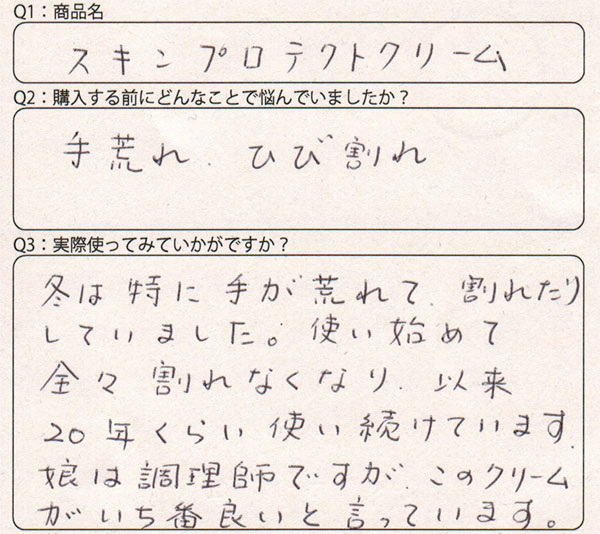 Q1：商品名
スキンプロテクトクリーム
Q2：購入する前にどんなことで悩んでいましたか？
手荒れ、ひび割れ
Q3：実際使ってみていかがですか？
冬は特に手が荒れて、割れたり
していました。使い始めて
全々割れなくなり、以来
20年くらい使い続けています
娘は調理師ですが、このクリーム
がいち番良いと言っています。